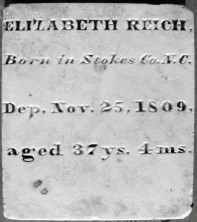 ELIZABETH REICH,
Born in Stokes Co. N.C.
Dep. Nov. 25, 1809,
aged 37ys. 4ms.